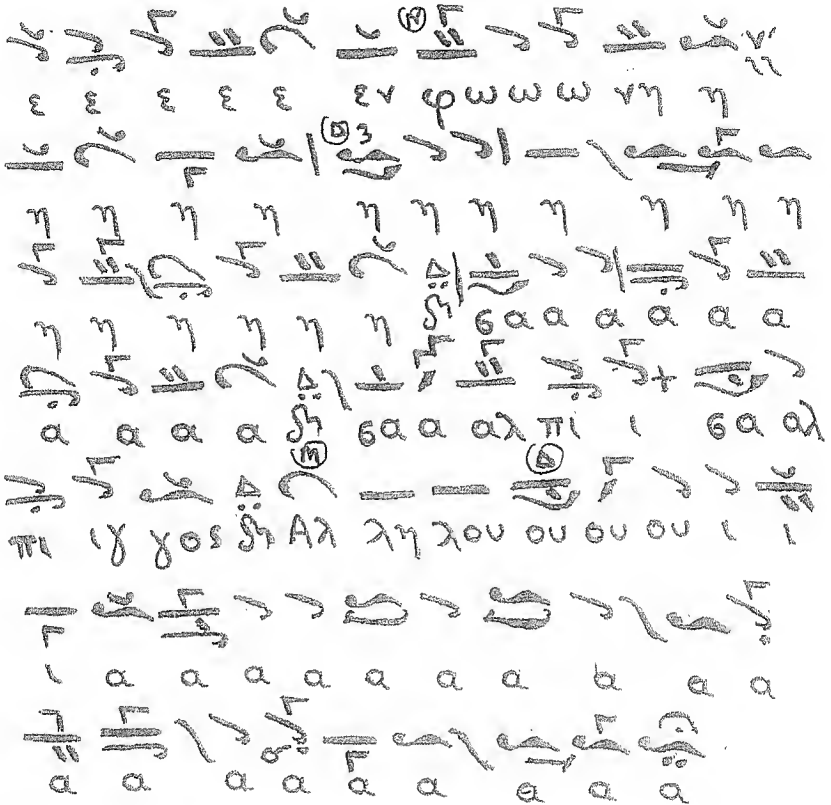 ε ε ε ε ε εν φω ω ω ω νη η
η η η η η η η η η η η
η η η η η η σα α α α α α
α α α α σα α αλ πι ι σα αλ
πι ιγ γος Αλ λη λου ου ου ου ι ι
ι α α α α α α α α α α
α α α α α α α α α